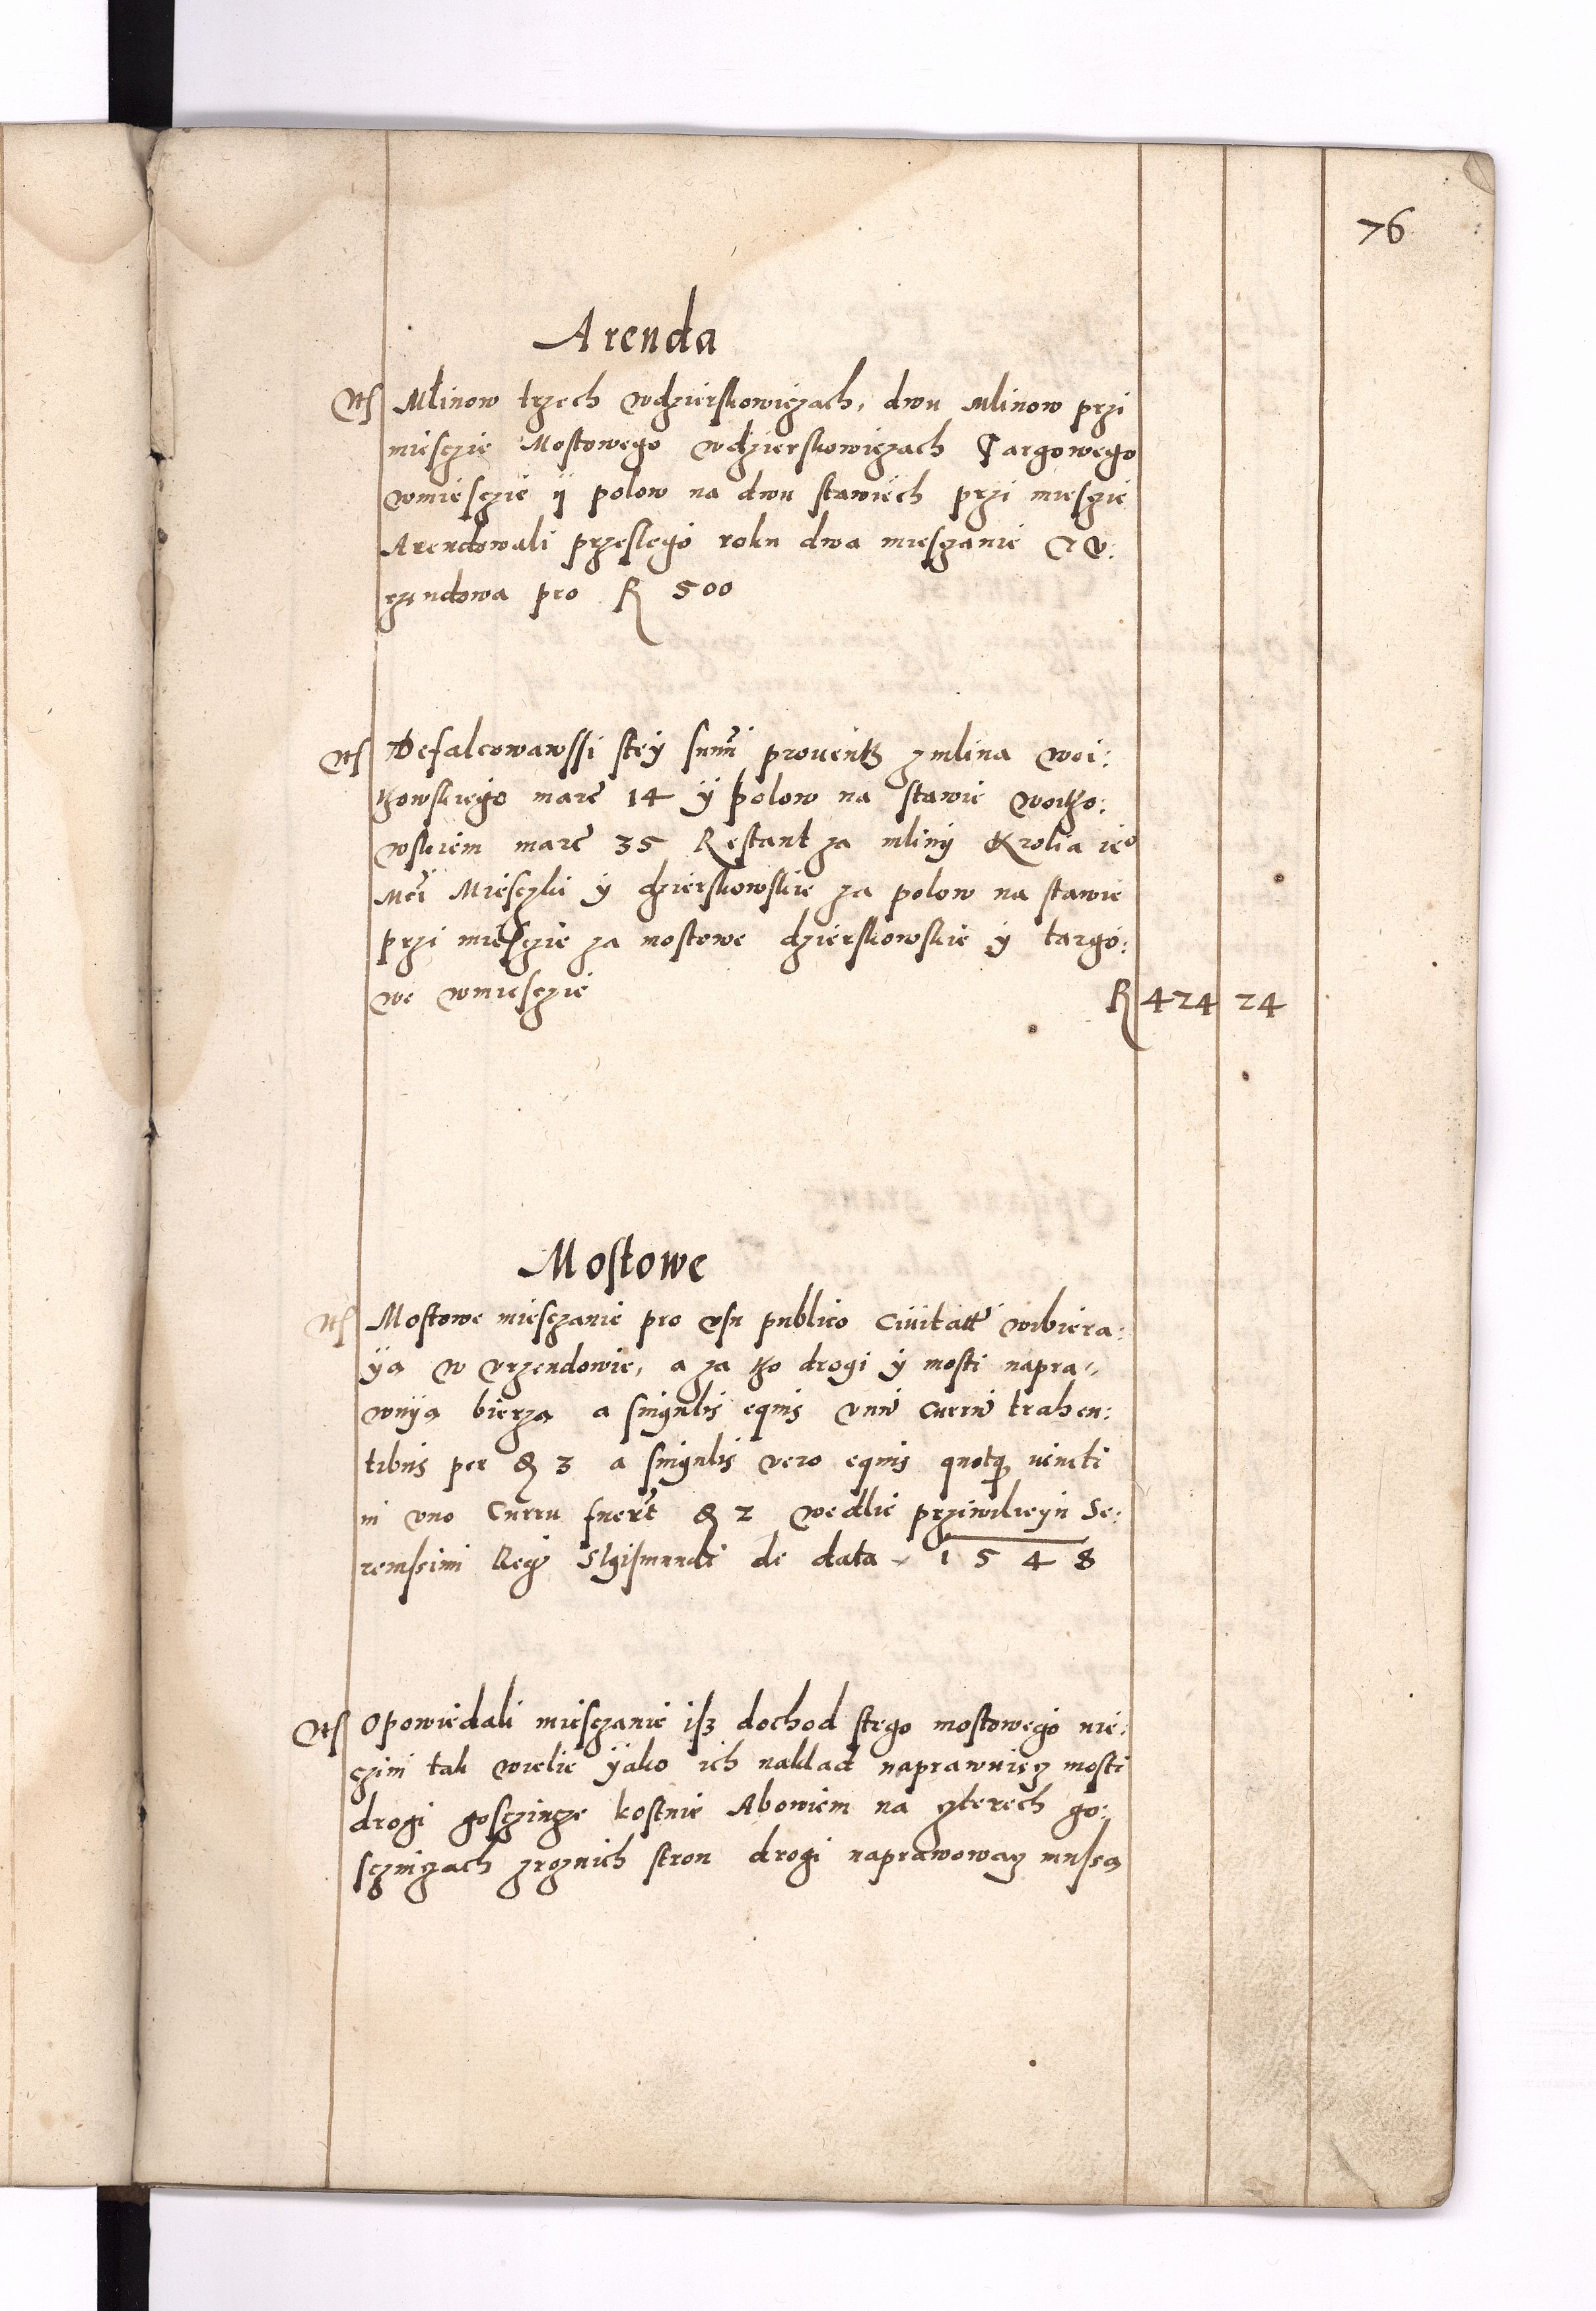 76
Arenda
Młinow trzech wdzierskowiczach, dwu mlinow przi
miesczie Mostowego wdzierskowiczach Targowego
wmiesczie ÿ polow na dwu stawiech przi miesczie
Arendowali przeslego roku dwa miesczanie z V:
rzendowa pro R 500
Defalcowawssi stey summ prouentÿ zmlina woi:
tzowskiego marc 14 ÿ polow na stawie woitzo:
wskiem marc 35 Restant za mliny Krolia ieo
Mci Mieszki y dzierskowskie za polow na stawie
przi miesczie za mostowe dzierskowskie y targo:
we wmiesczie R 424 24
Mostowe
Mostowe miesczanie pro vsu publico Ciuitatt wibiera:
ÿa w vrzendowie, a za tzo drogi y mosti napra-
wuÿa bierza a singulis equis vnu currū trahen:
tibus per 3 a singulis vero equis quotq vincti
in vno Curru fuert 2 wedlie prziwileyu Se:
renissimi Reg Sigismundi de data 1548
Opowiedali miesczanie isz dochod stego mostowego nie:
czini tak wielie ÿako ich naklad naprawuiecz mosti
drogi gosczincze kostuie Abowiem na czterech go:
sczinczach zroznich stron drogi naprawowacz mussa